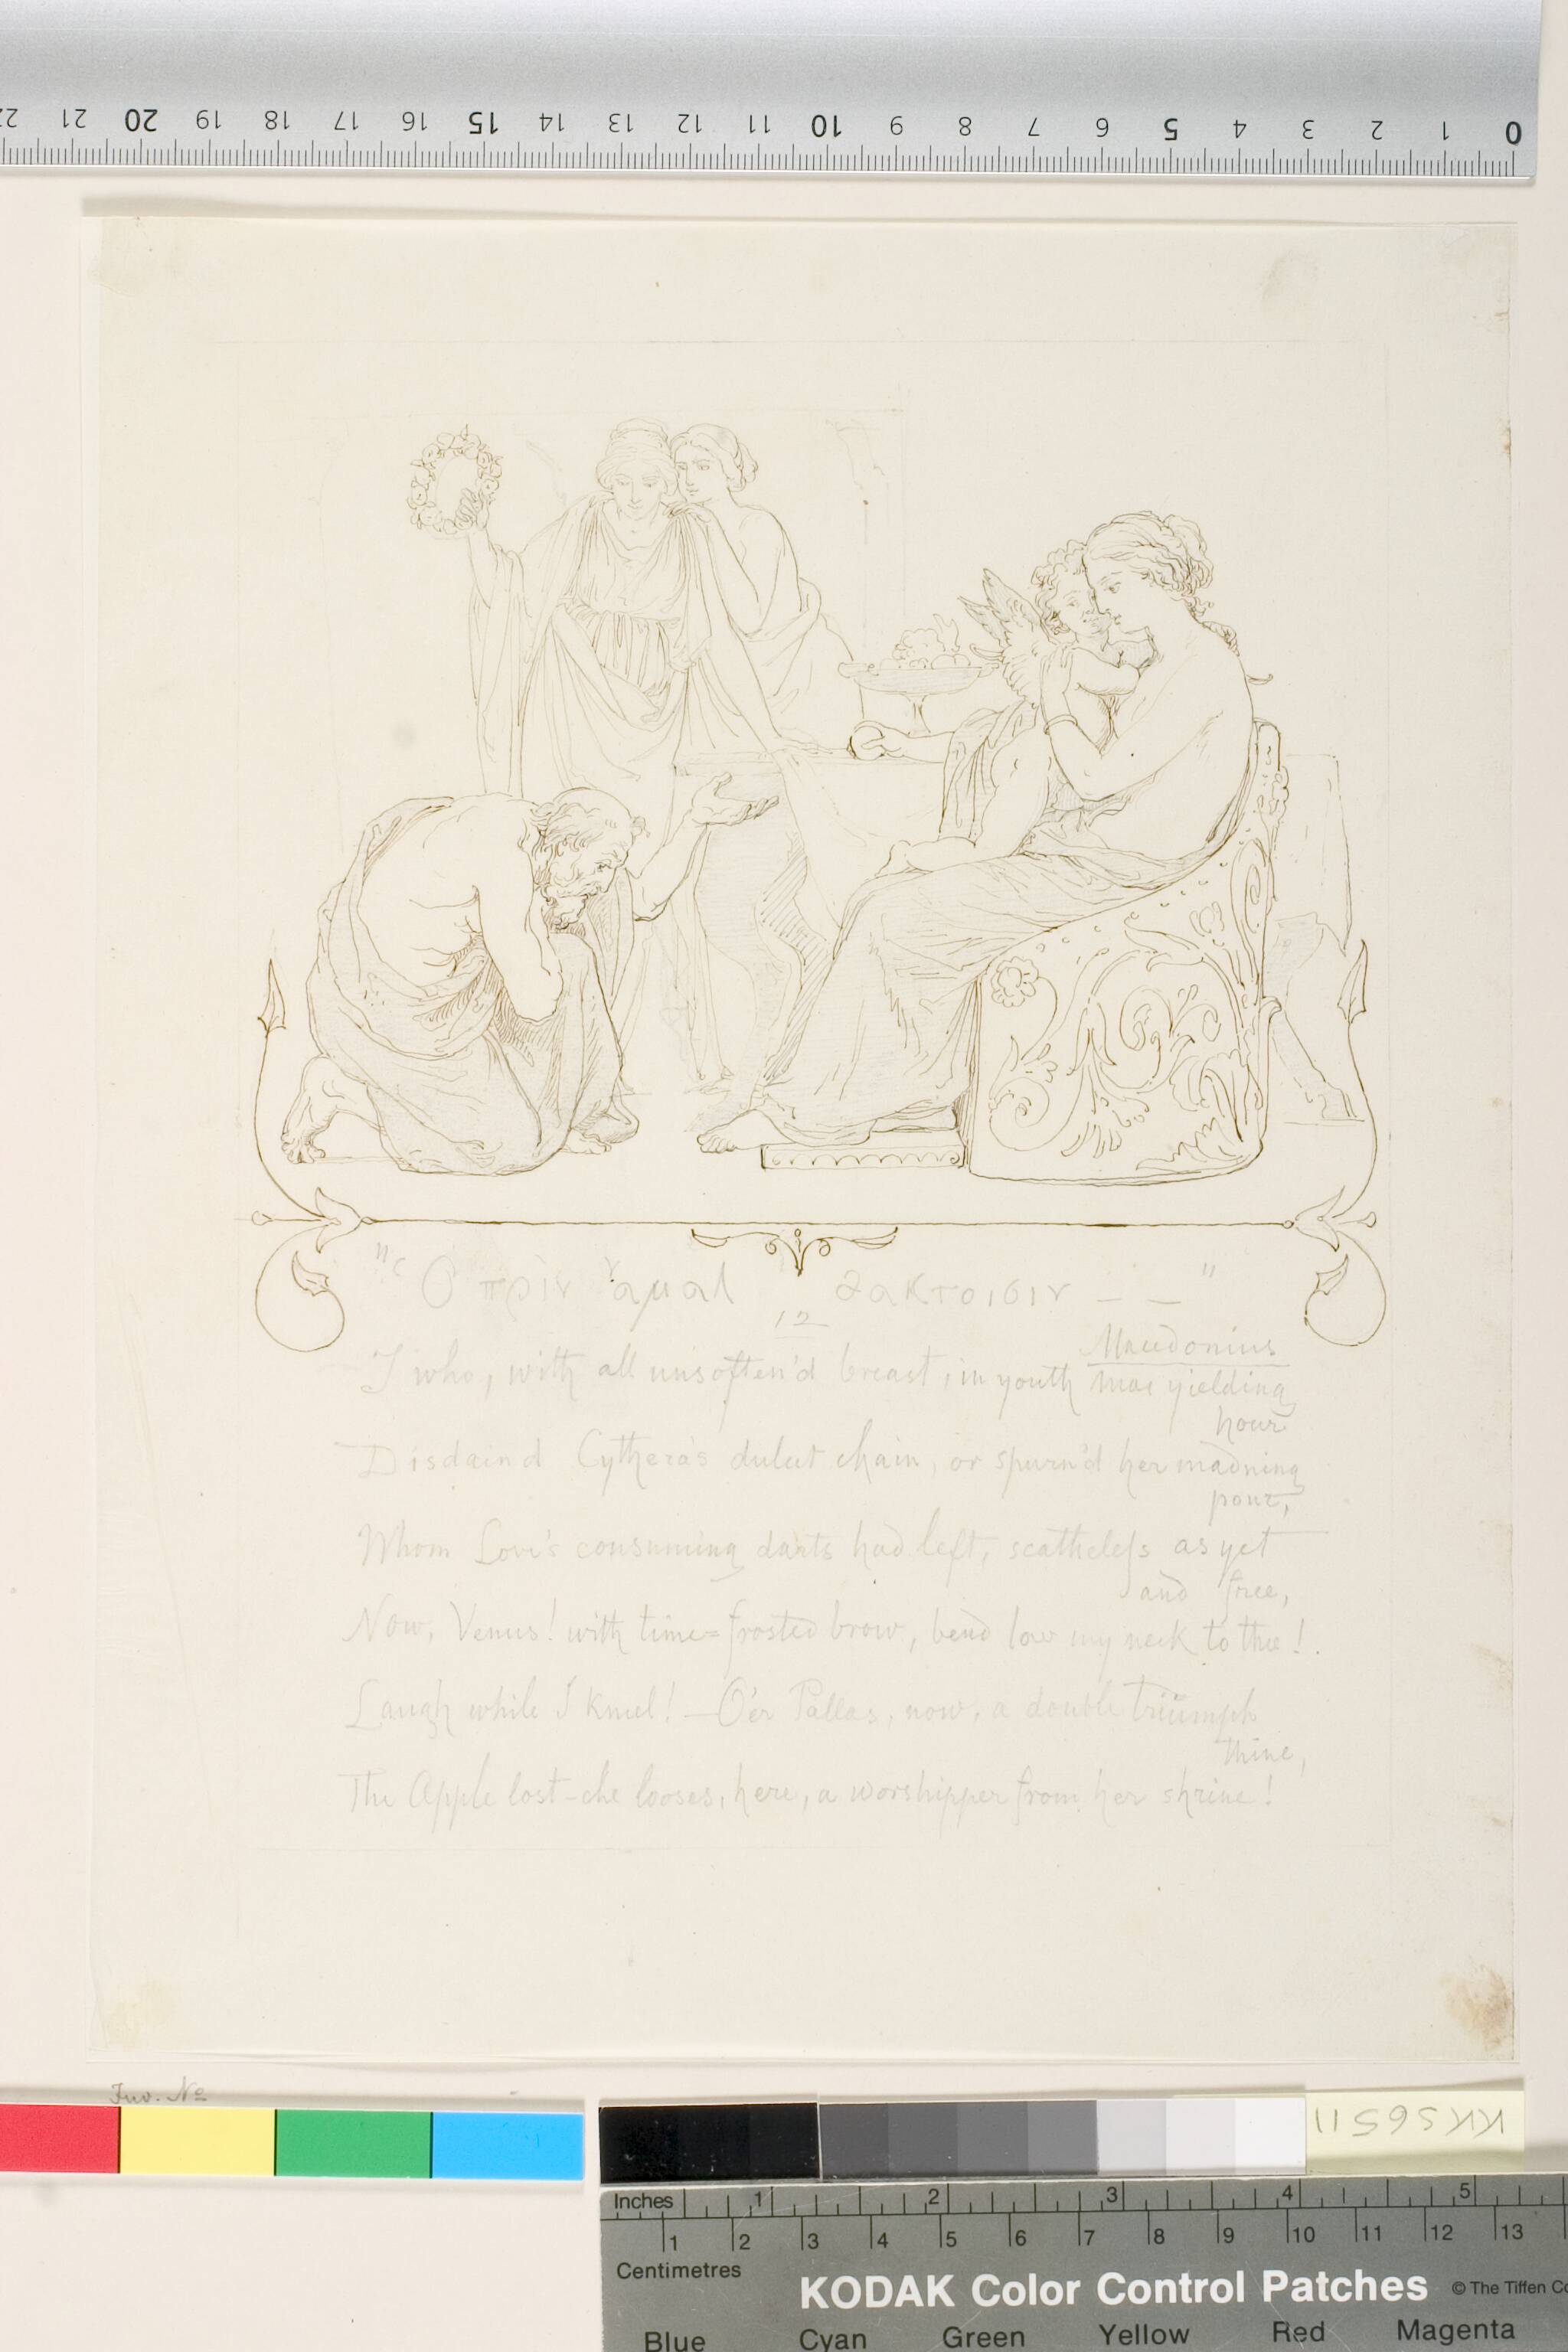 22 21 20 19 18 17 16 15 14 13 12 11 10 9 8 7 6 5 4 3 2 1 0
"Ὁ πρὶν ἀμαλ θακτοισιν — — "
12
Macedonius
I who, with all unsoften'd breast, in youth yielding
hour
Disdain'd Cythera's dulcet chain, or spurn'd her madning
pour,
Whom Love's consuming darts had left, scatheless as yet
and free,
Now, Venus! with time=frosted brow, bend low my neck to thee!.
Laugh while I kneel! — O'er Pallas, now, a double triumph
thine,
The Apple lost – she looses, here, a worshipper from her shrine!
Inv. No
KKS6511
Inches 1 2 3 4 5
1 2 3 4 5 6 7 8 9 10 11 12 13
Centimetres
KODAK Color Control Patches © The Tiffen
Blue Cyan Green Yellow Red Magenta